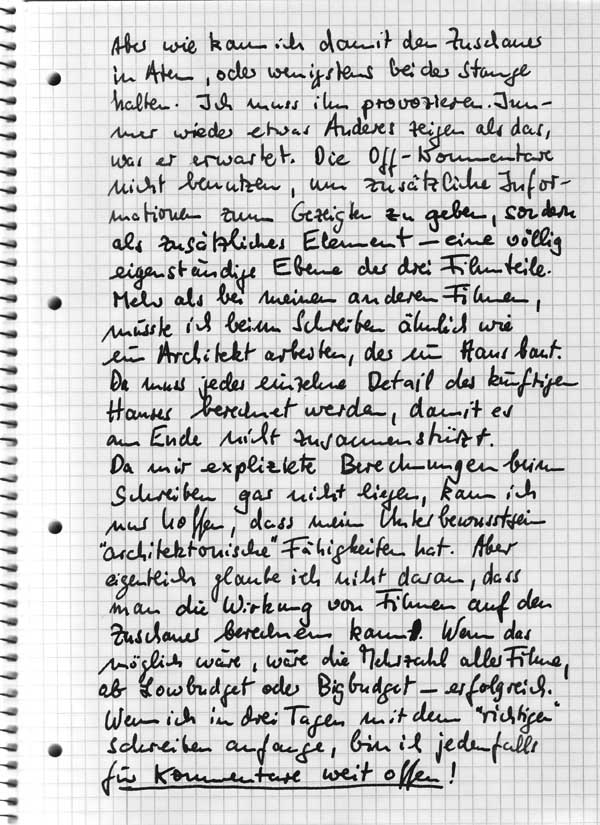 Aber wie kann ich damit den Zuschauer
in Atem, oder wenigstens bei der Stange
halten. Ich muss ihn provozieren. Im-
mer wieder etwas Anderes zeigen als das,
was er erwartet. Die Off-Kommentare
nicht benutzen, um zusätzliche Infor-
mationen zum Gezeigten zu geben, sondern
als zusätzliches Element – eine völlig
eigenständige Ebene der drei Filmteile.
Mehr als bei meinen anderen Filmen,
müsste ich beim Schreiben ähnlich wie
ein Architekt arbeiten, der ein Haus baut.
Da muss jedes einzelne Detail des künftigen
Hauses berechnet werden, damit es
am Ende nicht zusammenstürzt.
Da mir explizkte Berechnungen beim
Schreiben gar nicht liegen, kann ich
nur hoffen, dass mein Unterbewusstsein
"architektonische" Fähigkeiten hat. Aber
eigentlich glaube ich nicht daran, dass
man die Wirkung von Filmen auf den
Zuschauer berechnen kann. Wenn das
möglich wäre, wäre die Mehrzahl aller Filme,
ob Lowbudget oder Bigbudget – erfolgreich.
Wenn ich in drei Tagen mit dem "richtigen"
schreiben anfange, bin ich jedenfalls
für Kommentare weit offen!